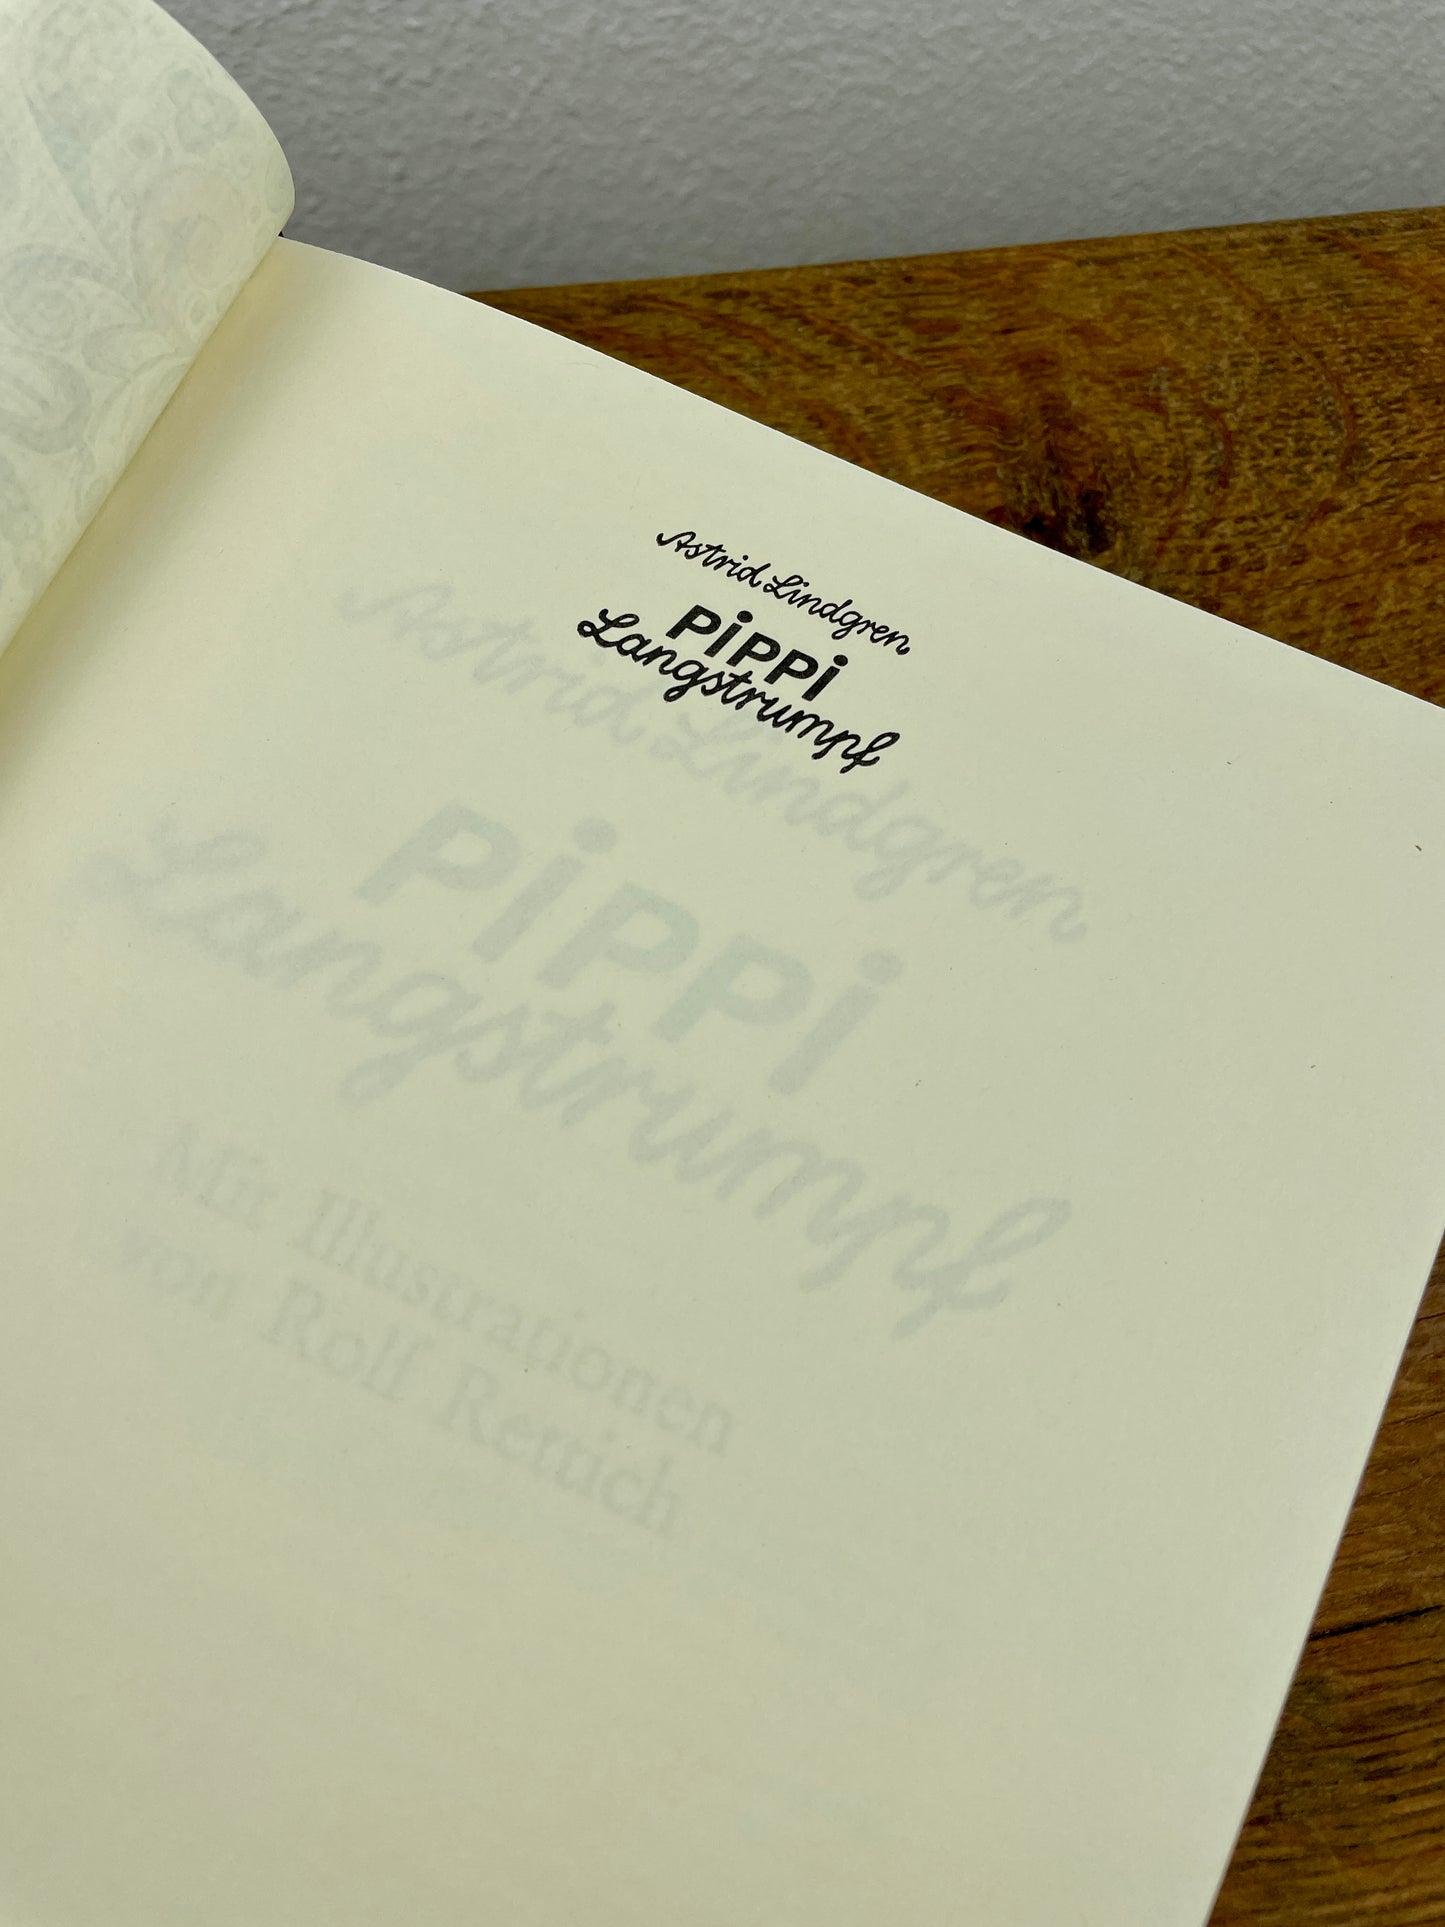 Astrid Lindgren
PiPPi
Langstrumpf
Astrid Lindgren
PiPPi
Langstrumpf
Mit Illustrationen
von Rolf Rettich